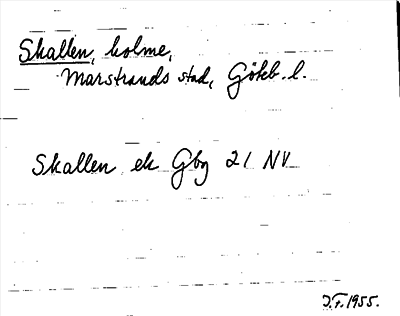 Skallen, holme,
Marstrands stad, Göteb. l.
Skallen ek Gbg 21 NV
J.F. 1955.